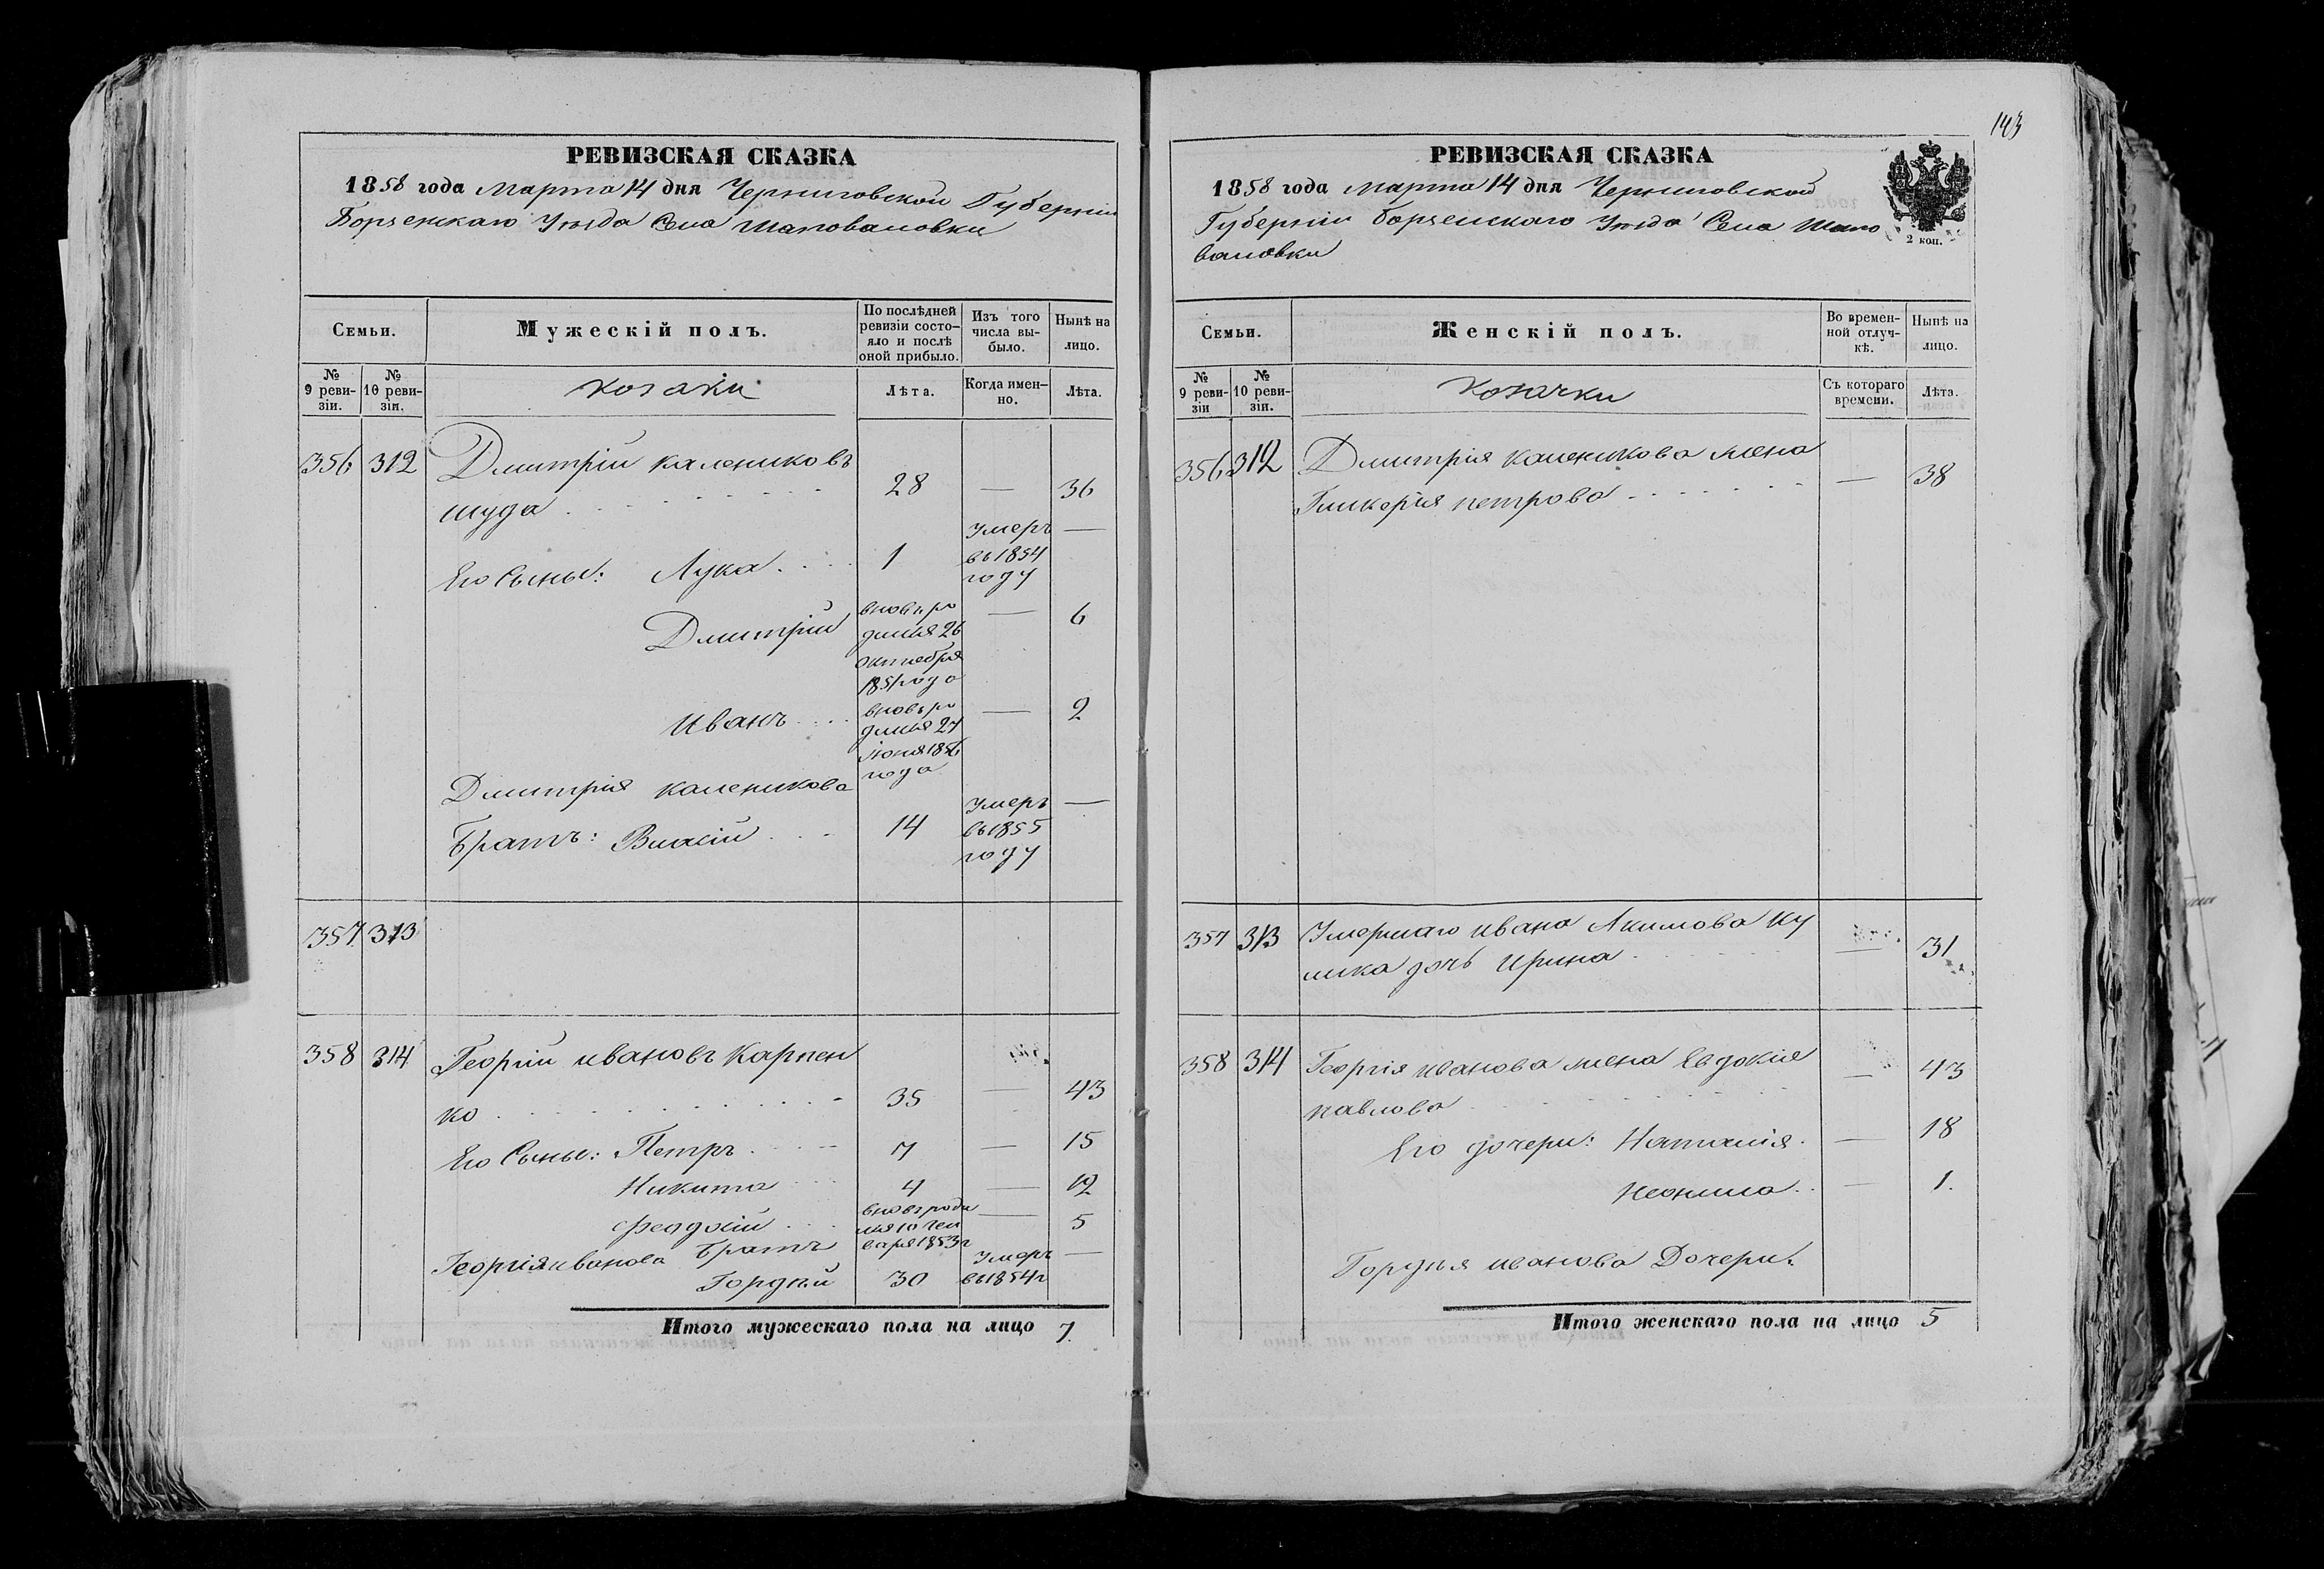 143
РЕВИЗСКАЯ СКАЗКА
1858 года Марта 14 дня Черниговской Губерніи
Борзенскаго Уѣзда Села Шаповаловки
Семьи.
Мужескій полъ.
По послѣдней ревизіи состо-
яло и послѣ оной прибыло.
Изъ того числа вы-
было.
Нынѣ на лицо.
№ 9 реви-
зіи.
№ 10 реви-
зіи.
козаки
Лѣта.
Когда имен-
но.
Лѣта.
356 312 Дмитрій калениковъ
шуда 28 — 36
Его Сыны: Лука 1 Умеръ въ 1854 году —
Дмитрій вновь ро
дился 26
октября
1851 года — 6
Иванъ вновь ро
дился 27
іюня 1856
года — 2
Дмитрія каленикова
Братъ: Власій 14 Умеръ въ 1855 году —
357 313
358 314 Георгій ивановъ Карпен
ко 35 — 43
Его Сыны: Петръ 7 — 15
Никита 4 — 12
Феодосій вновь роди
лся 10 ген
варя 1853 г — 5
Георгія иванова Братъ
Гордѣй 30 Умеръ въ 1854 г —
Итого мужескаго пола на лицо 7
РЕВИЗСКАЯ СКАЗКА
1858 года Марта 14 дня Черниговской
Губерніи Борзенскаго Уѣзда Села Шапо
валовки
2 коп.
Семьи.
Женскій полъ.
Во времен-
ной отлуч-
кѣ.
Нынѣ на лицо.
№ 9 реви-
зіи
№ 10 реви-
зіи.
Козачки
Съ котораго времени.
Лѣта.
356 312 Дмитрія каленикова жена
Гликерія петрова — 38
357 313 Умершаго ивана Акимова Ку
лика дочь Ирина — 31
358 314 Георгія иванова жена Евдокія
павлова — 43
Его дочери: Наталія — 18
Неонила — 1.
Гордѣя иванова Дочери:
Итого женскаго пола на лицо 5